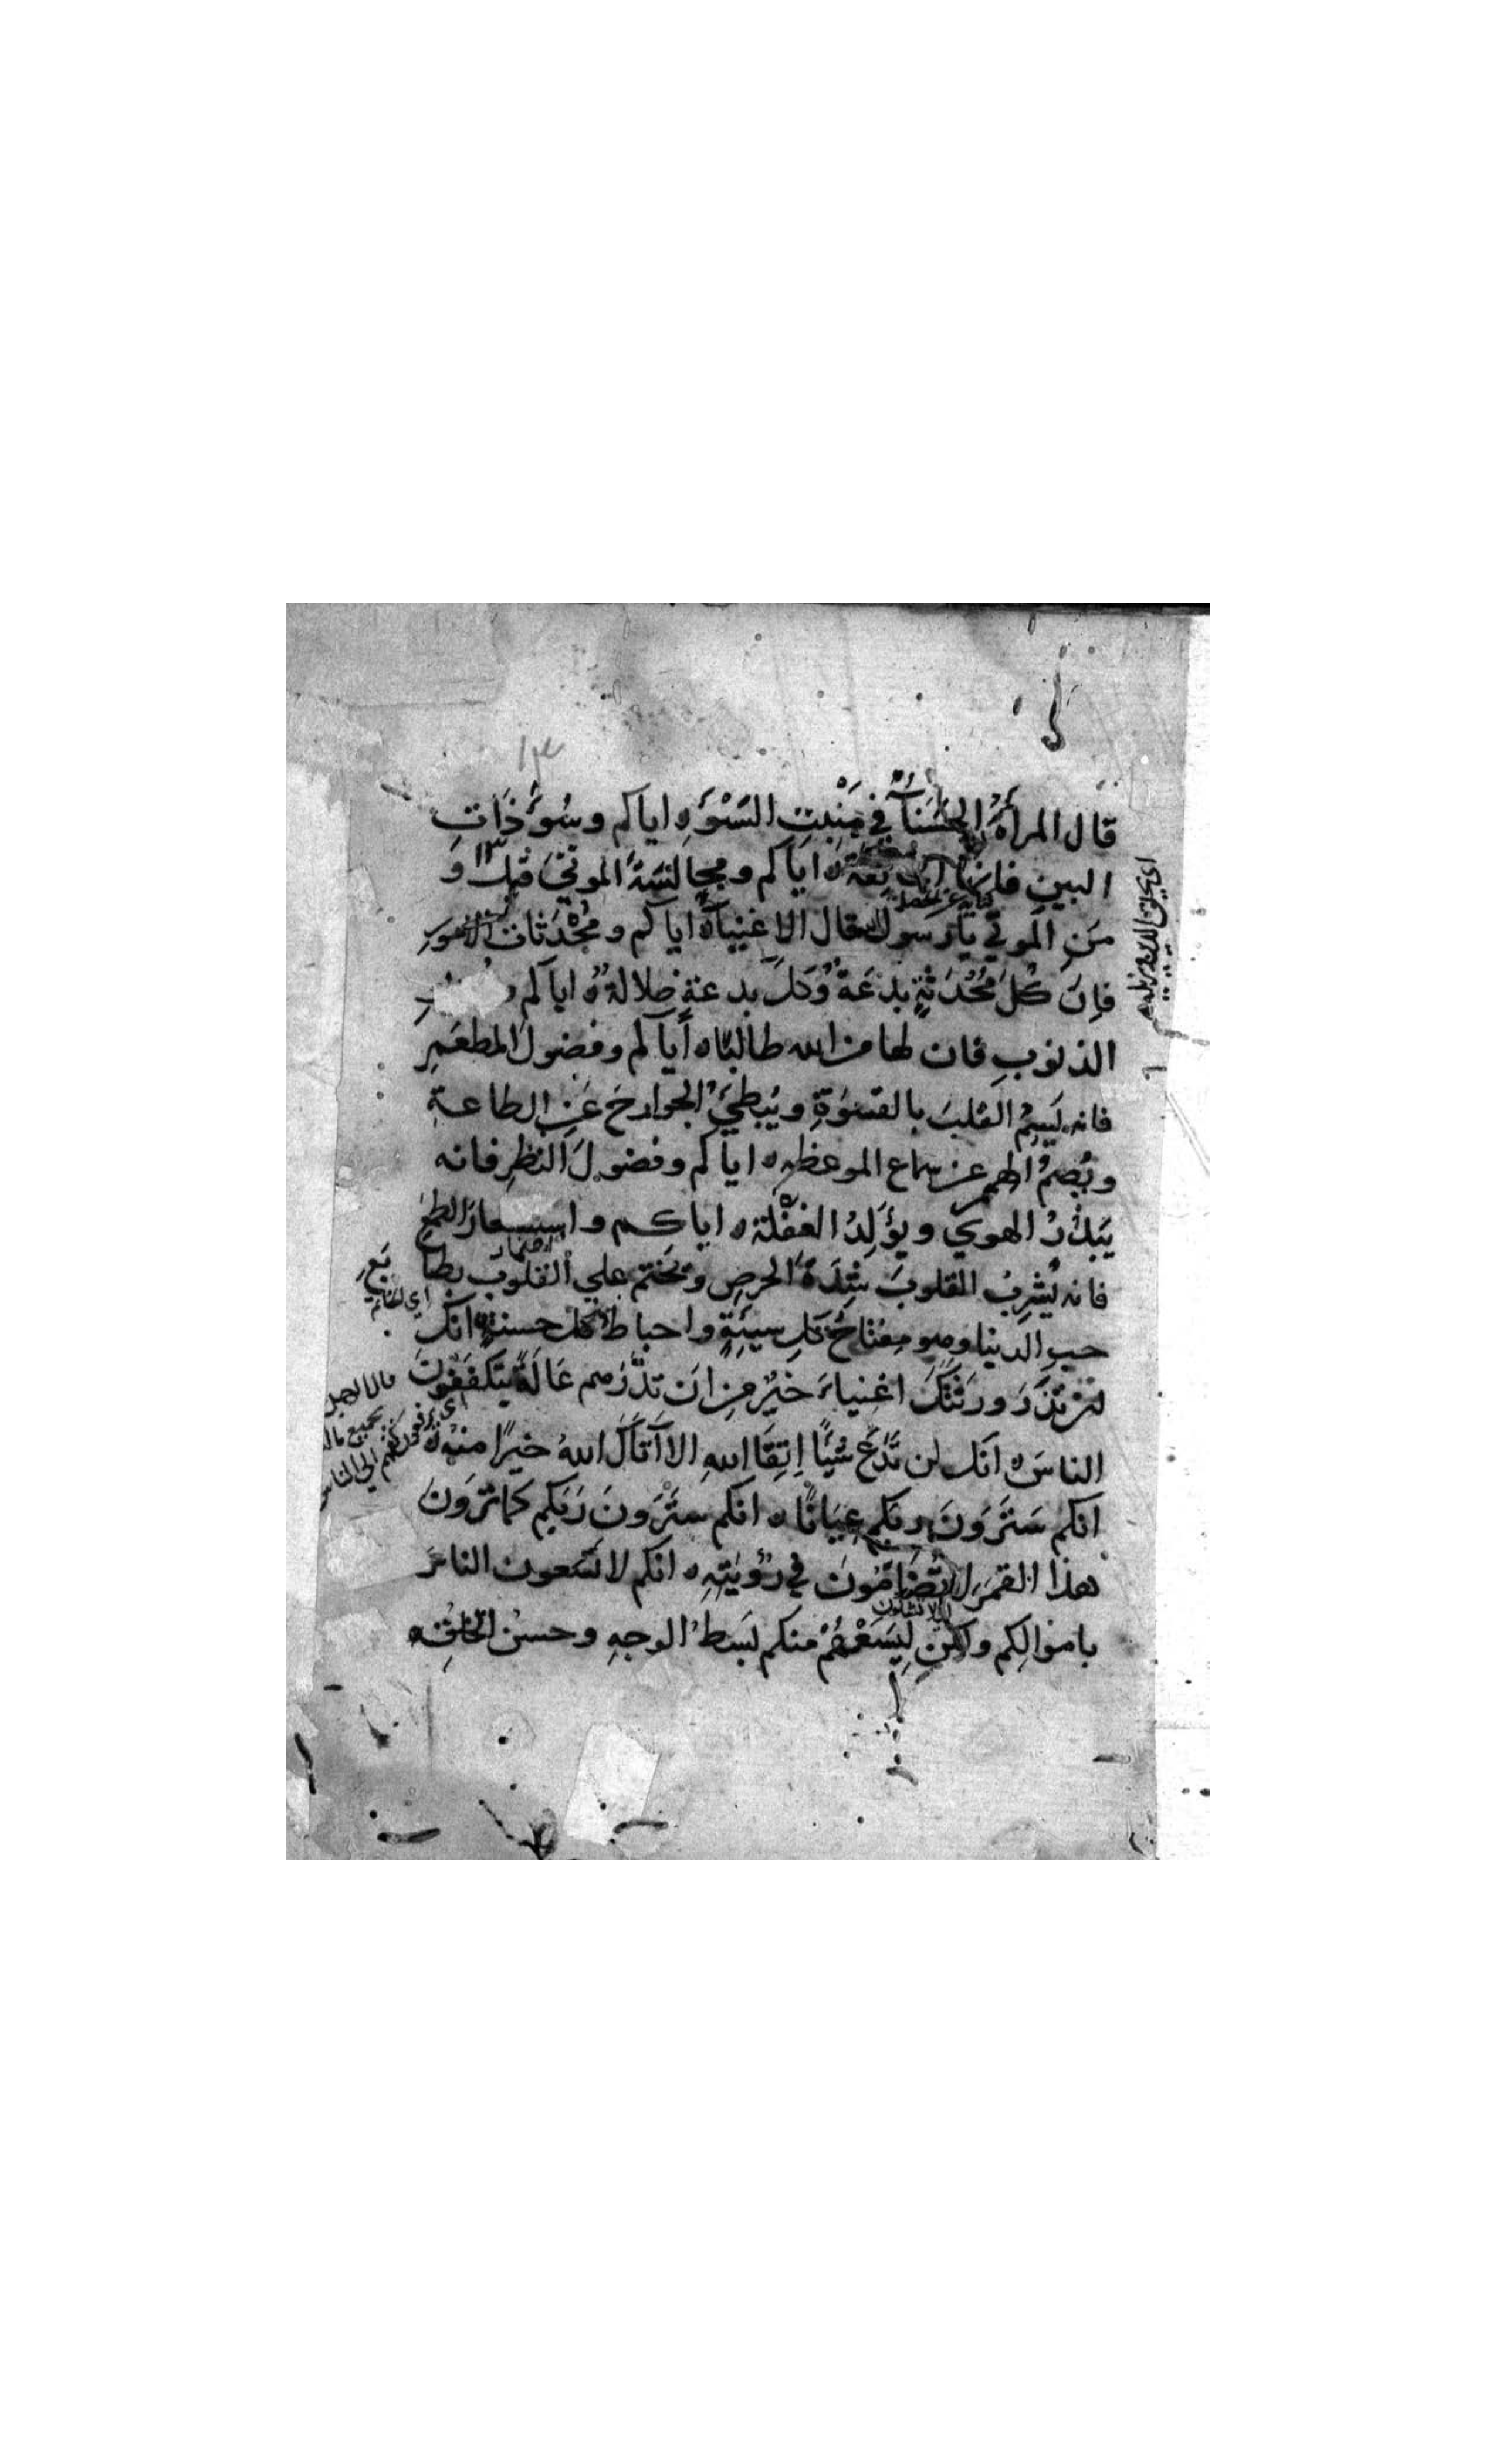 ١٣
قال المرأةُ الحَسْناءُ في مَنْبِتِ السَّوْءِ ه اياكم وسُوءَ ذَاتِ
البينِ فانها ه اياكم ومجالسَةَ الموتيَ قيل وَ
مَنِ المَوتي يا رسول الله قال الاغنياءُ ه اياكم ومُحْدَثاتِ الامورِ
فاِنَ كُلَ مُحْدَثةٍ بدْعَةٌ وكلَ بدعةٍ ضلالةٌ ه اياكم و
الذنوبِ فان لها من الله طالبًا ه اياكم وفضولَ المطعَمِ
فانه يَسِمُ القلبَ بالقسْوَةِ ويُبطِيُ الجوارحَ عَنِ الطاعةِ
ويُصِمُ الهمم عن سماع الموعظه ه اياكم وفضولَ النظرِ فانه
يَبذُرُ الهوي ويُولِدُ الغفْلة ه اياكم واستشعارَ الطمعِ
فانه يُشرِبُ القلوبَ شِدَةَ الحرصِ ويختم علي القلوب بطابَعِ
اي الخاتم
حبِ الدنيا وهو مِفتاحُ كلِ سيئةٍ واحباطُ كل حسنةٍ ه انكَ
لئن تذَرَ ورثتَكَ اغنياءَ خيرٌ من ان تذَرَهم عَالَةً يَتَكفَفُونَ
الناسَ ه انَك لن تَدَعَ شيًا اِتِقَا اللهِ الا آتاكَ اللهُ خيرًا منْه ه
اي يرفعون كفهم الي الناس
انكم سَتَرَونَ ربكم عِيَانًا ه انكم ستَرَونَ رَبَكم كما ترَونَ
هذا القمرَ لا تضَامُونَ في رُؤيتِهِ ه انكم لا تسَعون الناسَ
باموالِكم ولكن لِيَسَعْهُمْ منكم بَسْطُ الوجهِ وحسن الخلقِ ه